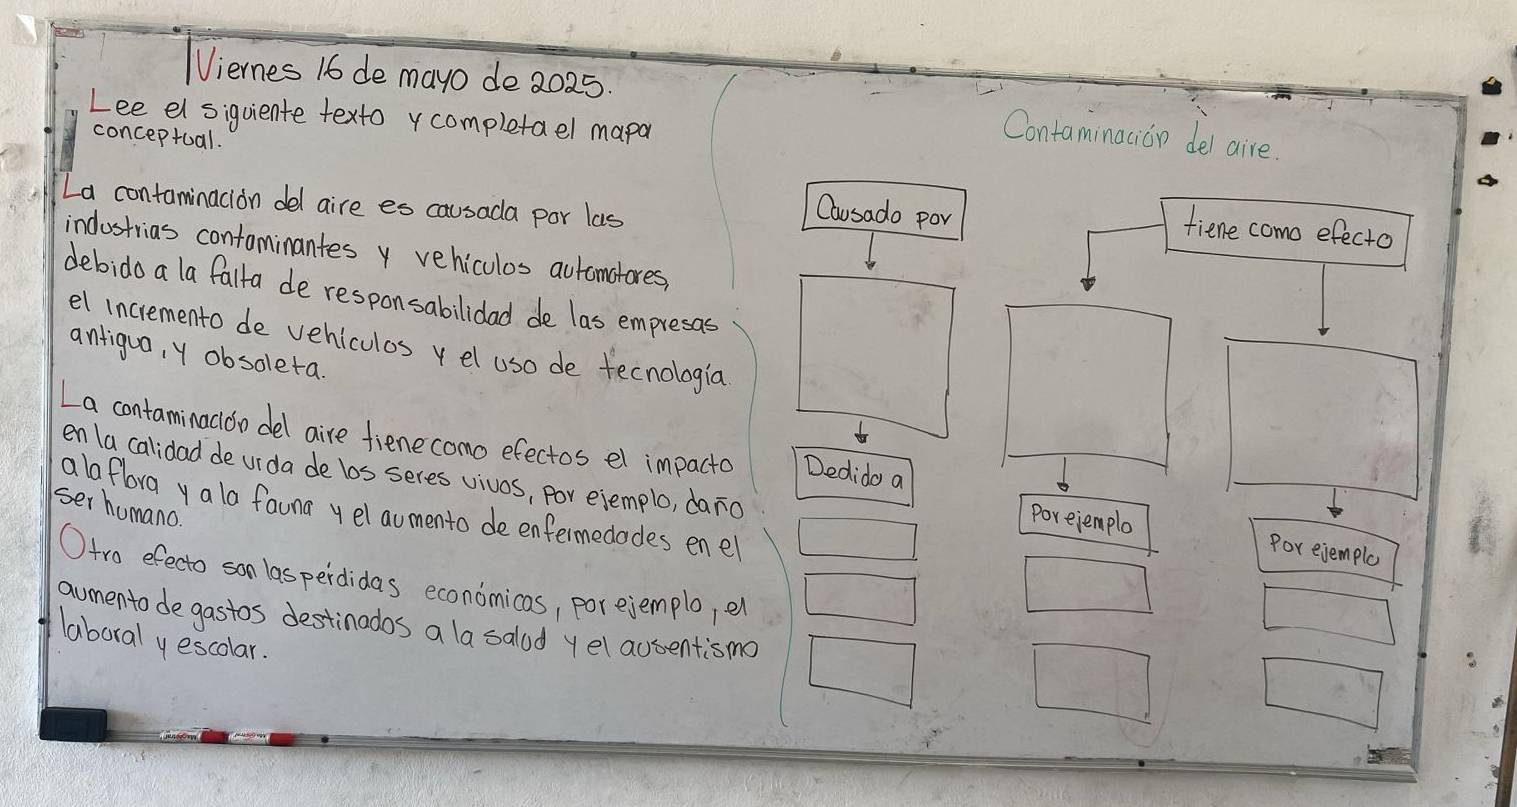 Viernes 16 de mayo de 2025.
Lee el siguiente texto y completa el mapa
conceptual.
La contaminación del aire es causada por las
industrias contaminantes y vehiculos automotores,
debido a la falta de responsabilidad de las empresas
el incremento de vehiculos y el uso de tecnología
antigua, y obsoleta.
La contaminación del aire tiene como efectos el impacto
en la calidad de vida de los seres vivos, por ejemplo, daño
a la flora y a la fauna y el aumento de enfermedades en el
ser humano.
Otro efecto son las pérdidas económicas, por ejemplo, el
aumento de gastos destinados a la salud y el ausentismo
laboral y escolar.
Contaminación del aire.
Causado por
tiene como efecto
Dedido a
Por ejemplo
Por ejemplo